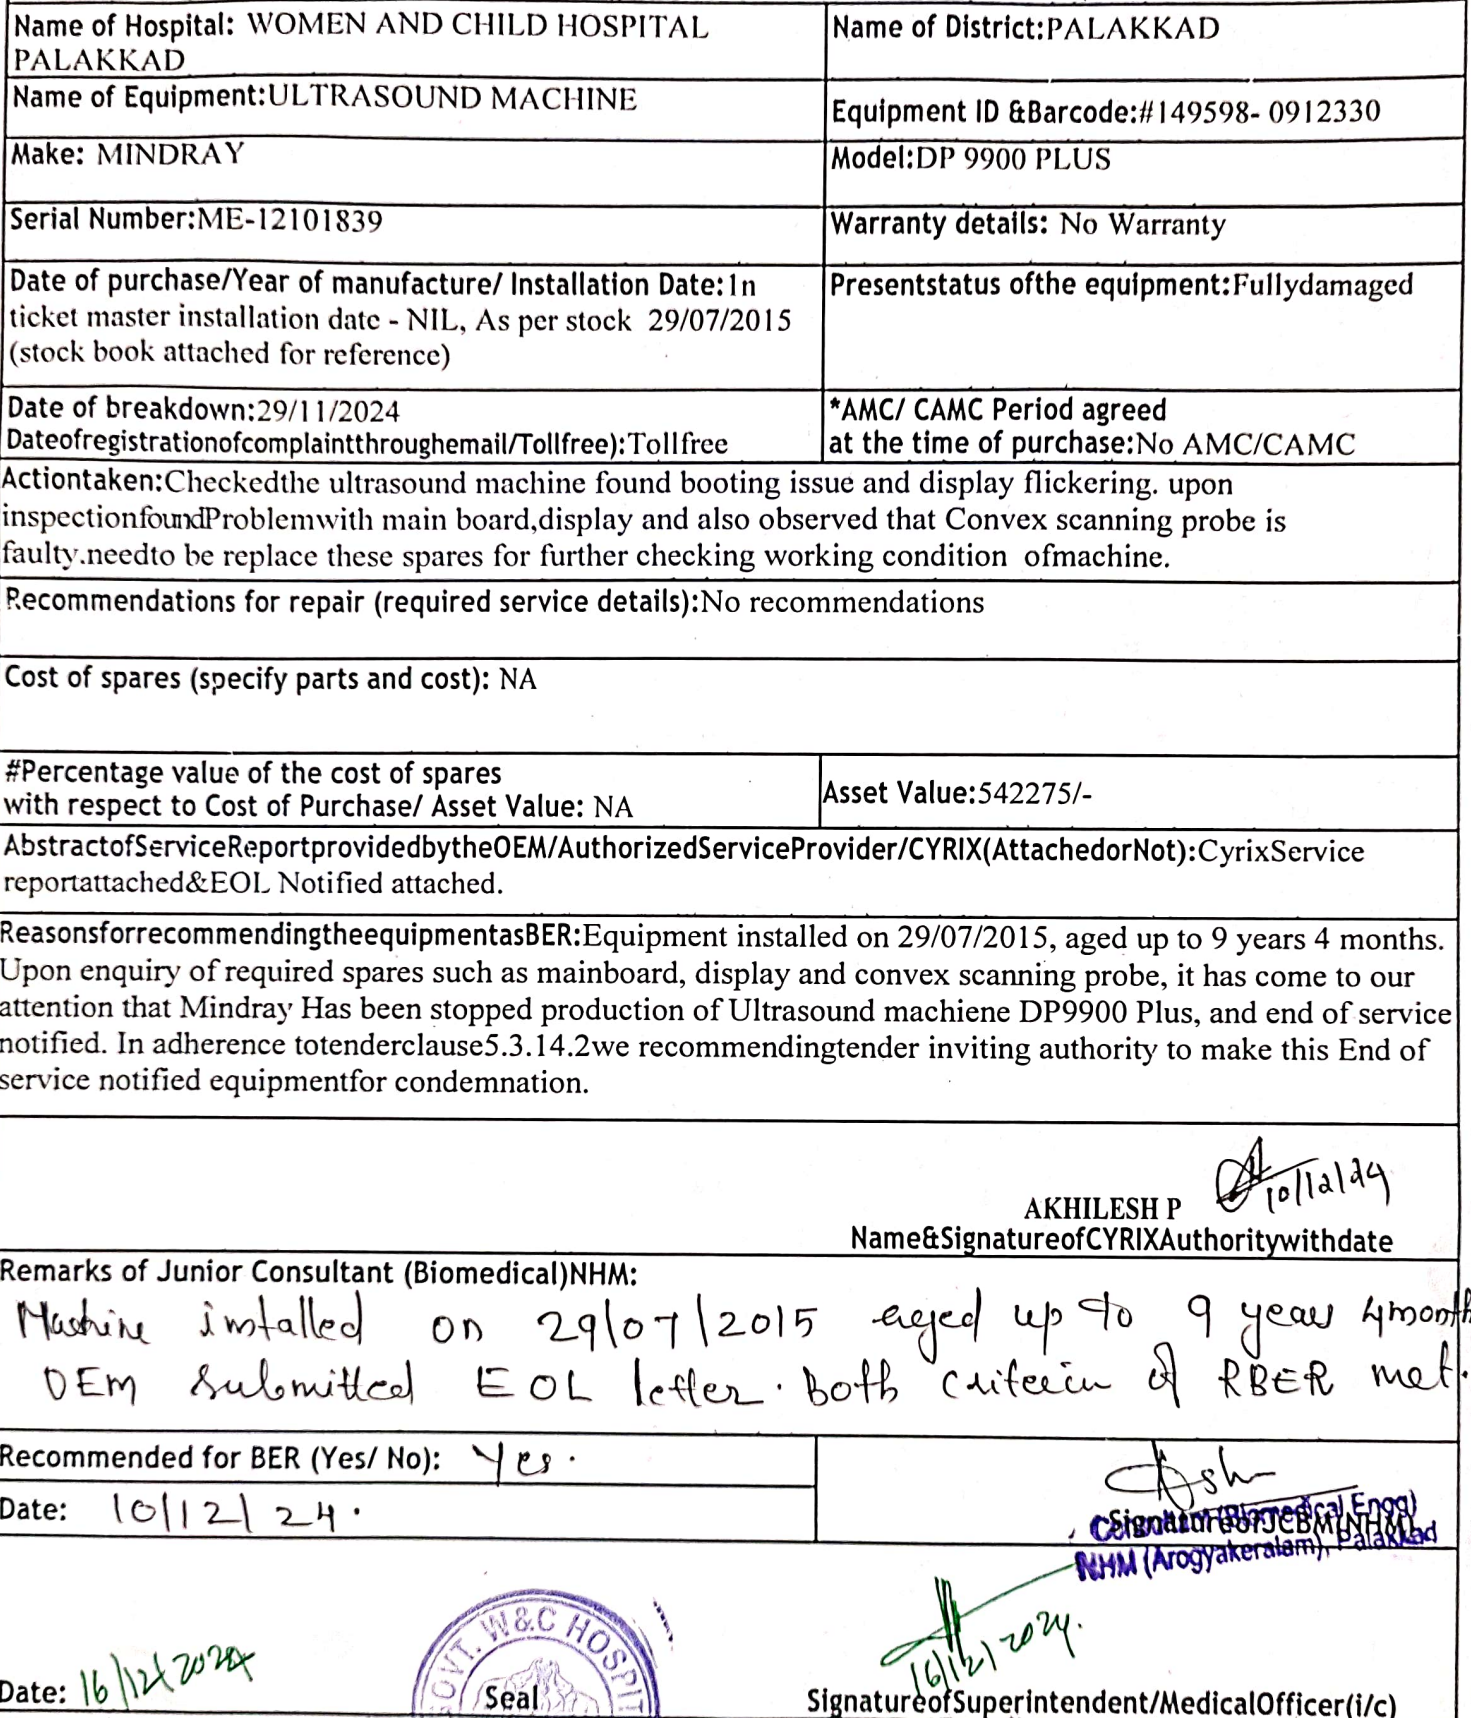 Name of Hospital: WOMEN AND CHILD HOSPITAL
PALAKKAD
Name of District:PALAKKAD
Name of Equipment:ULTRASOUND MACHINE
Equipment ID &Barcode:#149598- 0912330
Make: MINDRAY
Model:DP 9900 PLUS
Serial Number:ME-12101839
Warranty details: No Warranty
Date of purchase/Year of manufacture/ Installation Date:In
ticket master installation date - NIL, As per stock 29/07/2015
(stock book attached for reference)
Presentstatus ofthe equipment:Fullydamaged
Date of breakdown:29/11/2024
Dateofregistrationofcomplaintthroughemail/Tollfree):Tollfree
*AMC/ CAMC Period agreed
at the time of purchase:No AMC/CAMC
Actiontaken:Checkedthe ultrasound machine found booting issue and display flickering. upon
inspectionfoundProblemwith main board,display and also observed that Convex scanning probe is
faulty.needto be replace these spares for further checking working condition ofmachine.
Recommendations for repair (required service details):No recommendations
Cost of spares (specify parts and cost): NA
#Percentage value of the cost of spares
with respect to Cost of Purchase/ Asset Value: NA
Asset Value:542275/-
AbstractofServiceReportprovidedbytheOEM/AuthorizedServiceProvider/CYRIX(AttachedorNot):CyrixService
reportattached&EOL Notified attached.
ReasonsforrecommendingtheequipmentasBER:Equipment installed on 29/07/2015, aged up to 9 years 4 months.
Upon enquiry of required spares such as mainboard, display and convex scanning probe, it has come to our
attention that Mindray Has been stopped production of Ultrasound machiene DP9900 Plus, and end of service
notified. In adherence totenderclause5.3.14.2we recommendingtender inviting authority to make this End of
service notified equipmentfor condemnation.
10/12/24
AKHILESH P
Name&SignatureofCYRIXAuthoritywithdate
Remarks of Junior Consultant (Biomedical)NHM:
Machine installed on 29/07/2015 aged up to 9 year 4month
OEM submitted EOL letter. Both criteria of RBER met.
Recommended for BER (Yes/ No): Yes.
Date: 10/12/24.
SignatureofJCBM(NHM)
(Biomedical Engg)
NHM (Arogyakeralam), Palakkad
16/12/2024.
Date: 16/12/2024
GOVT. W&C HOSPIT
Seal
SignatureofSuperintendent/MedicalOfficer(i/c)